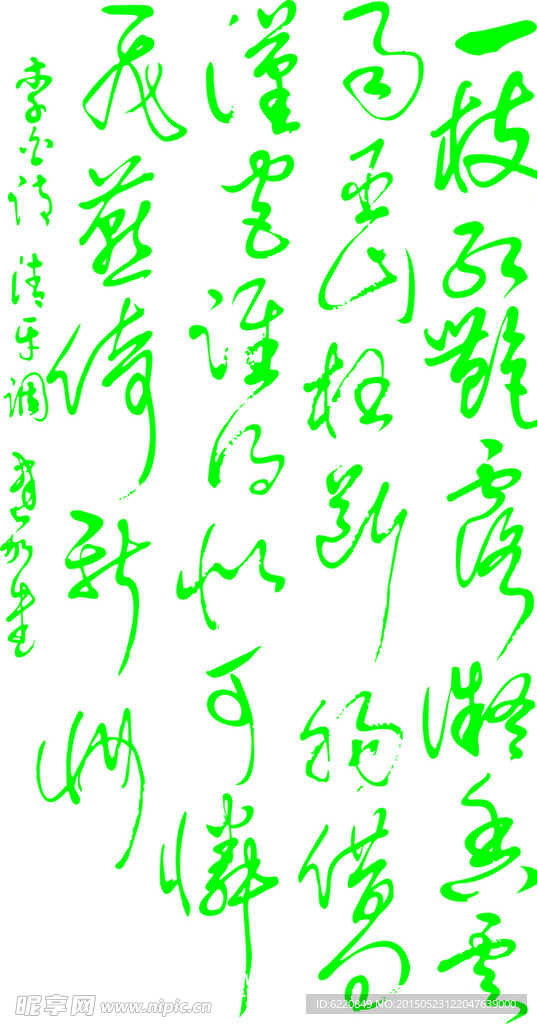 一枝紅艷露凝香雲
雨巫山枉斷腸借問
漢宮誰得似可憐
飛燕倚新妝
李白詩 清平調
昵享网 www.nipic.cn
ID:6220849 NO:20150523122047639000